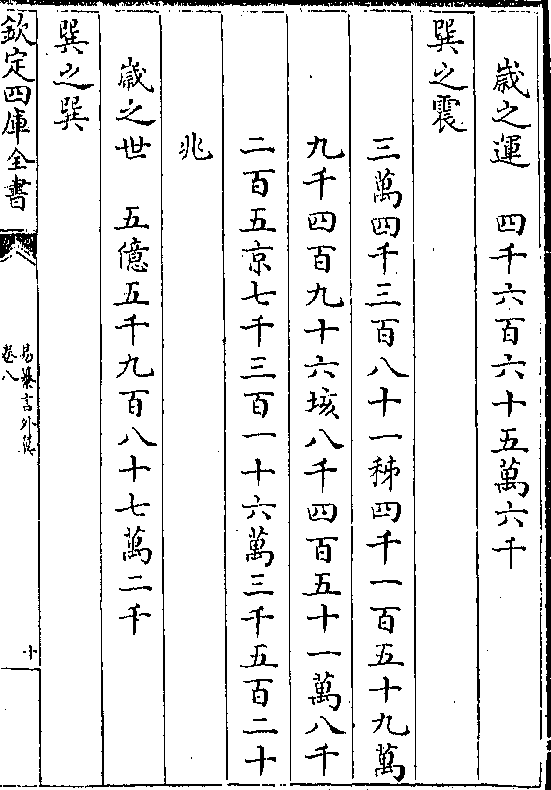 歲之運　四千六百六十五萬六千
巽之震
三萬四千三百八十一秭四千一百五十九萬
九千四百九十六垓八千四百五十一萬八千
二百五京七千三百一十六萬三千五百二十
兆
歲之世　五億五千九百八十七萬二千
巽之巽
欽定四庫全書
易纂言外翼
卷八
十